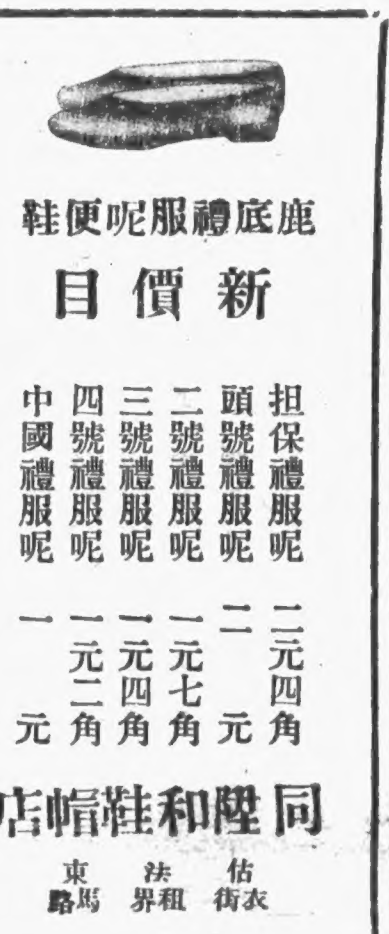 鹿底禮服呢便鞋
新價目
担保禮服呢 二元四角
頭號禮服呢 二元
二號禮服呢 一元七角
三號禮服呢 一元四角
四號禮服呢 一元二角
中國禮服呢 一元
同陞和鞋帽店
估衣街
法租界
東馬路